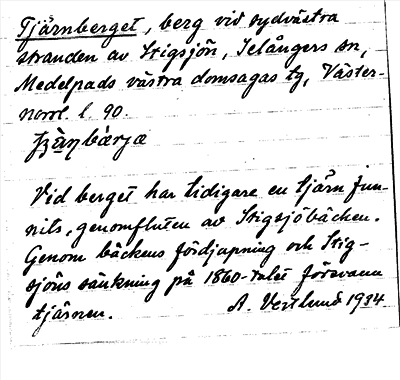 Tjärnberget, berg vid sydvästra
stranden av Stigsjön, Selångers sn,
Medelpads västra domsagas tg, Väster-
norrl. l. 90.
bärja
Vid berget har tidigare en tjärn fun-
nits, genomfluten av Stigsjöbäcken.
Genom bäckens fördjupning och Stig-
sjöns sänkning på 1860-talet försvann
tjärnen. A. Vestlund 1934